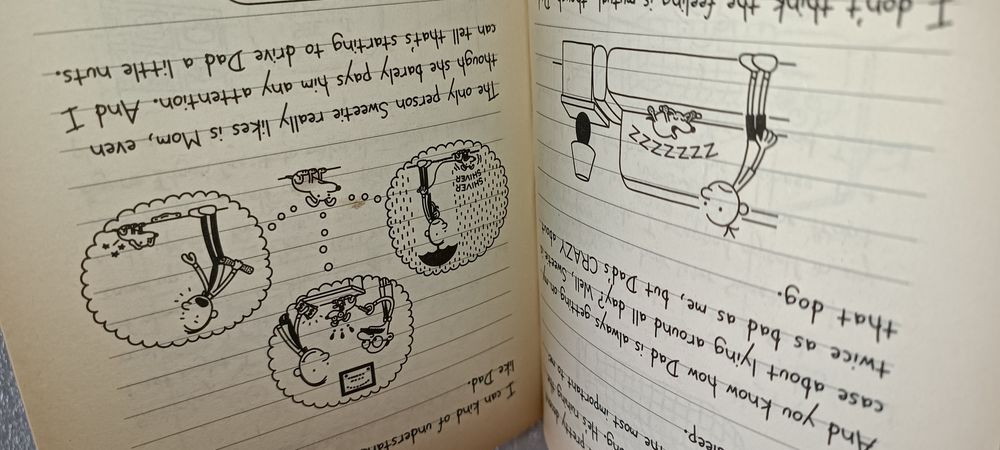 pretty
He's ruining
the most important to me
sleep.
And you know how Dad is always getting on
case about lying around all day? Well, Sweetie
twice as bad as me, but Dad's CRAZY about
that dog.
ZZZZZZZ
I don't think the feeling is mutual, though. 
I can kind of understand
like Dad.
SHIVER
SHIVER
The only person Sweetie really likes is Mom, even
though she barely pays him any attention. And I
can tell that's starting to drive Dad a little nuts.